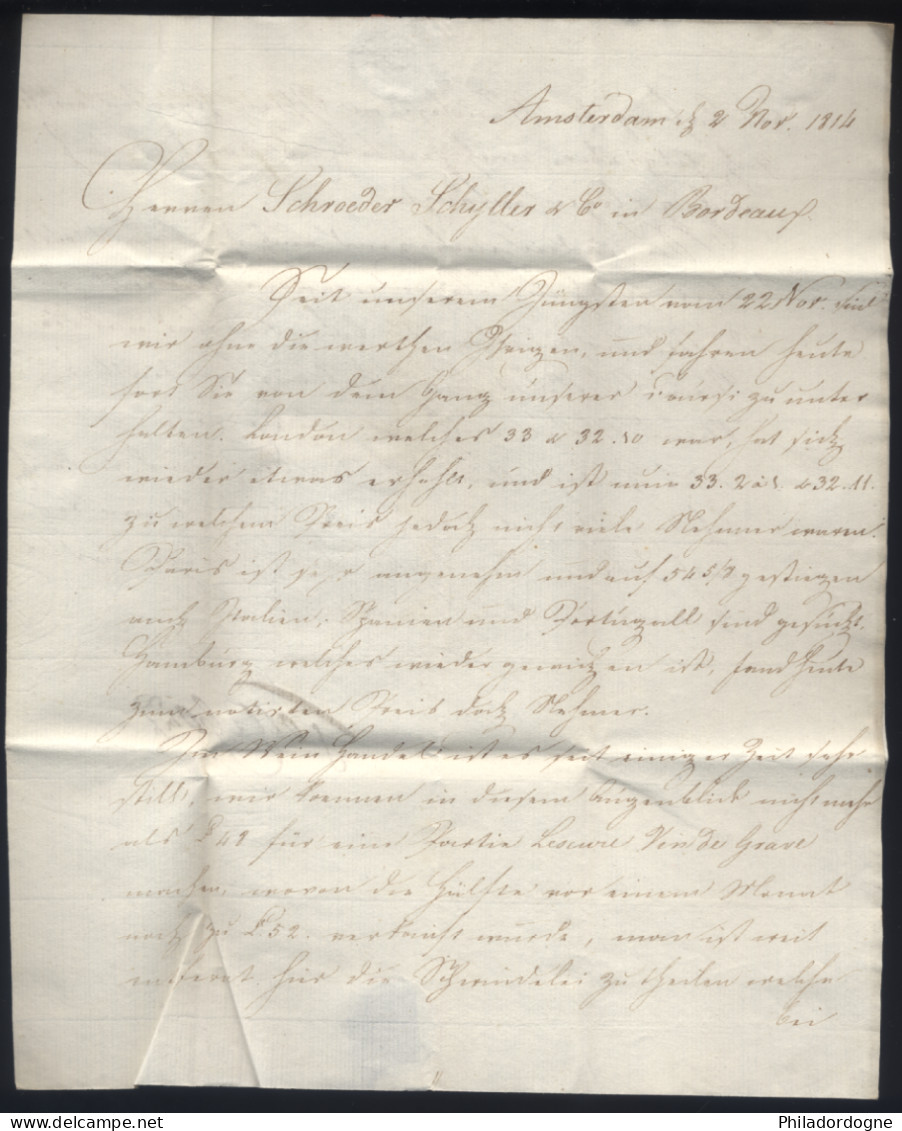 Amsterdam 2 Nov. 1814
Herren Schroeder Schyller & Co in Bordeaux.
Seit unserem Jüngsten vom 22 Nov. sind
wir ohne die werthen Ihrigen, und fahren heute
fort Sie von dem Gang unserer Course zu unter
halten. London welches 33 & 32.10 war, hat sich
wieder etwas erhohlt, und ist nun 33.2 à 1. & 32.11.
zu welchem Preis jedoch nicht viele Nehmer waren.
Paris ist angenehm und auf 54 5/7 gestiegen
auch Italien, Spanien und Portugall sind gesucht.
Hamburg welches wieder gewichen ist, fand heute
zum notirten Preis doch Nehmer.
Im Wein Handel ist es seit einiger Zeit sehr
still, wir koennen in diesem Augenblick nicht mehr
als £ 49 für eine Partie Lescure Vin de Grave
machen, wovon die Hälfte vor einem Monat
noch zu £ 52. verkauft wurde, man ist weit
entfernt hier die Schwindelei zu theilen welche
bei
Philadordogne